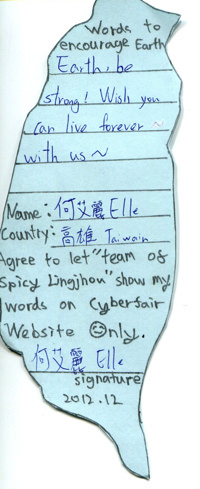 Words to
encourage Earth
Earth, be
strong! Wish you
can live forever ~
with us ~
Name: 何艾麗 Elle
Country: 高雄 Taiwain
Agree to let "team of
Spicy Lingjhou" show my
words on Cyberfair
Website ☺ only.
何艾麗 Elle
signature
2012.12